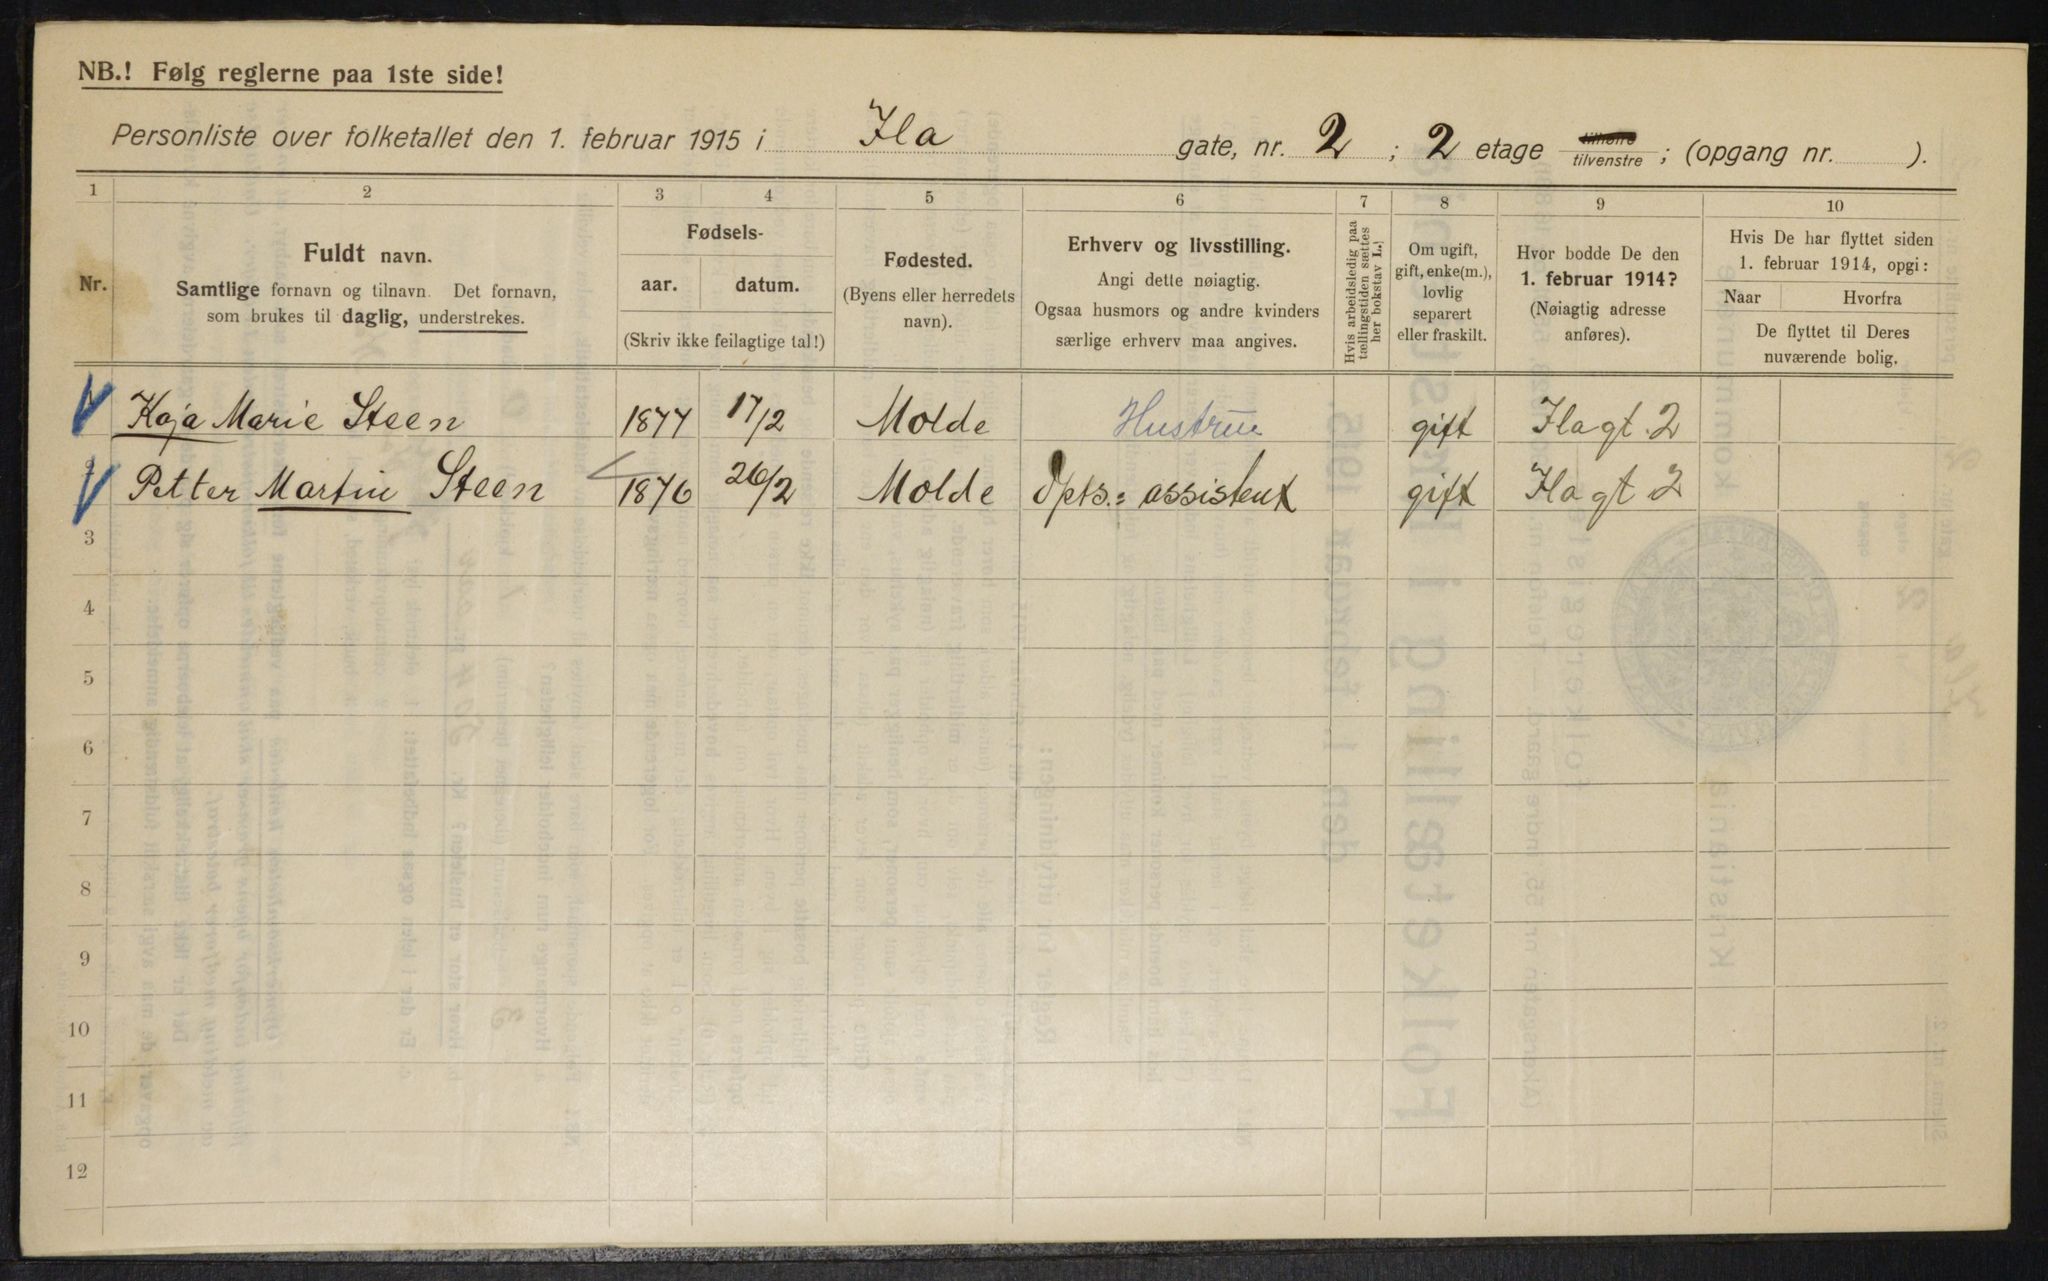 NB.! Følg reglerne paa 1ste side!
Personliste over folketallet den 1. februar 1915 i Ila gate, nr. 2; 2 etage tilhøire tilvenstre; (opgang nr. ).
1 2 3 4 5 6 7 8 9 10
Nr.
Fuldt navn.
Samtlige fornavn og tilnavn. Det fornavn,
som brukes til daglig, understrekes.
Fødsels-
aar. datum.
(Skriv ikke feilagtige tal!)
Fødested.
(Byens eller herredets
navn).
Erhverv og livsstilling.
Angi dette nøiagtig.
Ogsaa husmors og andre kvinders
særlige erhverv maa angives.
Hvis arbeidsledig paa
tællingstiden sættes
her bokstav L.
Om ugift,
gift, enke(m.),
lovlig
separert
eller fraskilt.
Hvor bodde De den
1. februar 1914?
(Nøiagtig adresse
anføres).
Hvis De har flyttet siden
1. februar 1914, opgi:
Naar Hvorfra
De flyttet til Deres
nuværende bolig.
1 Kaja Marie Steen 1877 17/2 Molde Hustrue gift Ilagt. 2
2 Petter Martin Steen 1876 26/2 Molde Opts.= assistent gift Ilagt 2
3
4
5
6
7
8
9
10
11
12